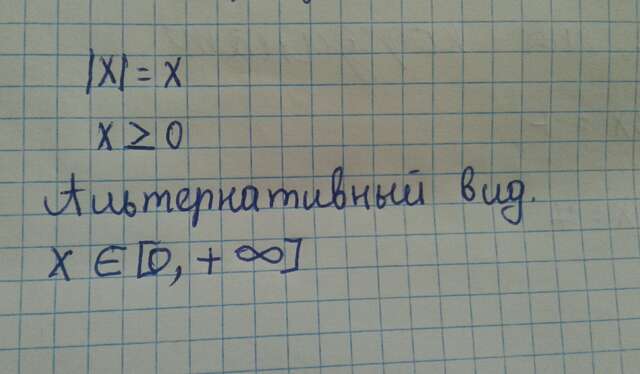 |x| = x
x ≥ 0
Альтернативный вид.
x ∈ [0, + ∞]